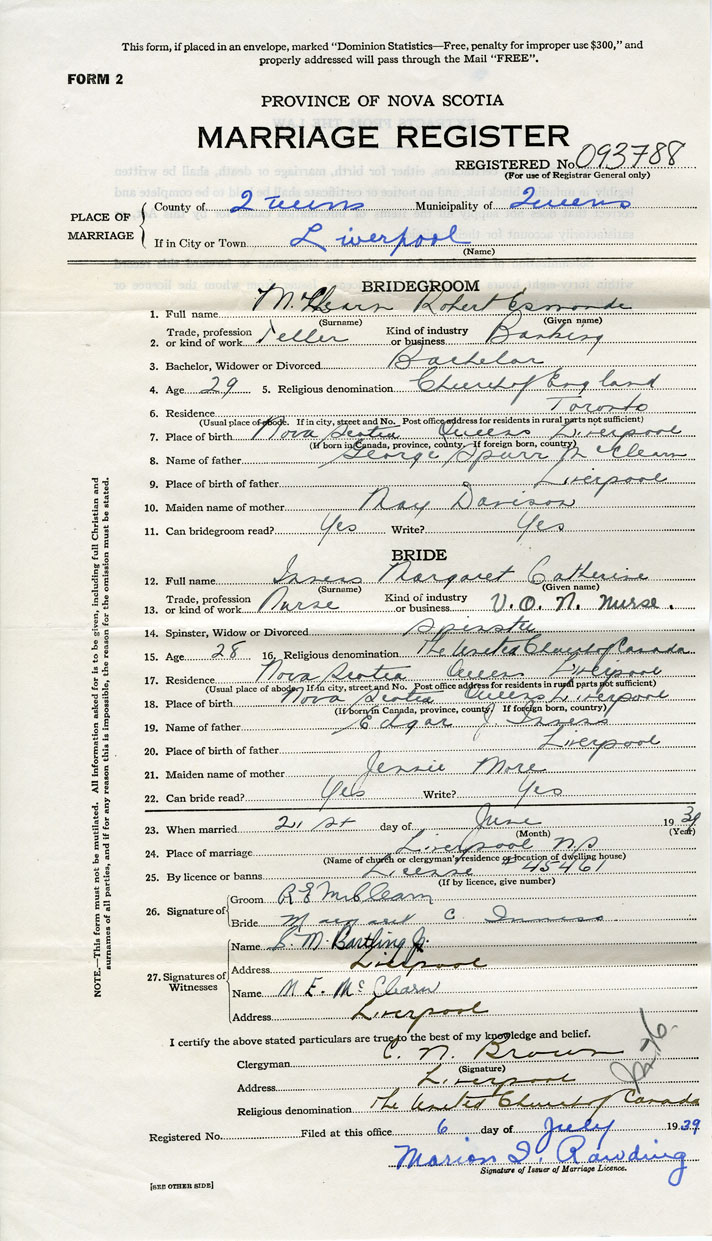 This form, if placed in an envelope, marked "Dominion Statistics—Free, penalty for improper use $300," and
properly addressed will pass through the Mail "FREE".
FORM 2
PROVINCE OF NOVA SCOTIA
MARRIAGE REGISTER
REGISTERED No. 093788
(For use of Registrar General only)
PLACE OF MARRIAGE
County of Queens Municipality of Queens
If in City or Town Liverpool
(Name)
BRIDEGROOM
1. Full name McClearn Robert Esmonde
(Surname) (Given name)
2. Trade, profession or kind of work Teller Kind of industry or business Banking
3. Bachelor, Widower or Divorced Bachelor
4. Age 29 5. Religious denomination Church of England
6. Residence Toronto
(Usual place of abode. If in city, street and No. Post office address for residents in rural parts not sufficient)
7. Place of birth Nova Scotia Queens Liverpool
(If born in Canada, province, county. If foreign born, country)
8. Name of father George Spurr McClearn
9. Place of birth of father Liverpool
10. Maiden name of mother May Davison
11. Can bridegroom read? Yes Write? Yes
BRIDE
12. Full name Inness Margaret Catherine
(Surname) (Given name)
13. Trade, profession or kind of work Nurse Kind of industry or business V.O.N. Nurse.
14. Spinster, Widow or Divorced Spinster
15. Age 28 16. Religious denomination The United Church of Canada
17. Residence Nova Scotia Queens Liverpool
(Usual place of abode. If in city, street and No. Post office address for residents in rural parts not sufficient)
18. Place of birth Nova Scotia Queens Liverpool
(If born in Canada, province, county. If foreign born, country)
19. Name of father Edgar J Inness
20. Place of birth of father Liverpool
21. Maiden name of mother Jennie More
22. Can bride read? Yes Write? Yes
23. When married 21st day of June 1939
(Month) (Year)
24. Place of marriage Liverpool N S
(Name of church or clergyman's residence or location of dwelling house)
25. By licence or banns License 45461
(If by licence, give number)
26. Signature of
Groom R E McClearn
Bride Margaret C. Inness
27. Signatures of Witnesses
Name L. M. Bartling Jr.
Address Liverpool
Name M. E. McClearn
Address Liverpool
I certify the above stated particulars are true to the best of my knowledge and belief.
Clergyman C. N. Brown
(Signature)
Address Liverpool
Religious denomination The United Church of Canada
Registered No. Filed at this office 6 day of July 1939
Marion I. Rawding
Signature of Issuer of Marriage Licence.
[SEE OTHER SIDE]
NOTE.—This form must not be mutilated. All information asked for is to be given, including full Christian and
surnames of all parties, and if for any reason this is impossible, the reason for the omission must be stated.